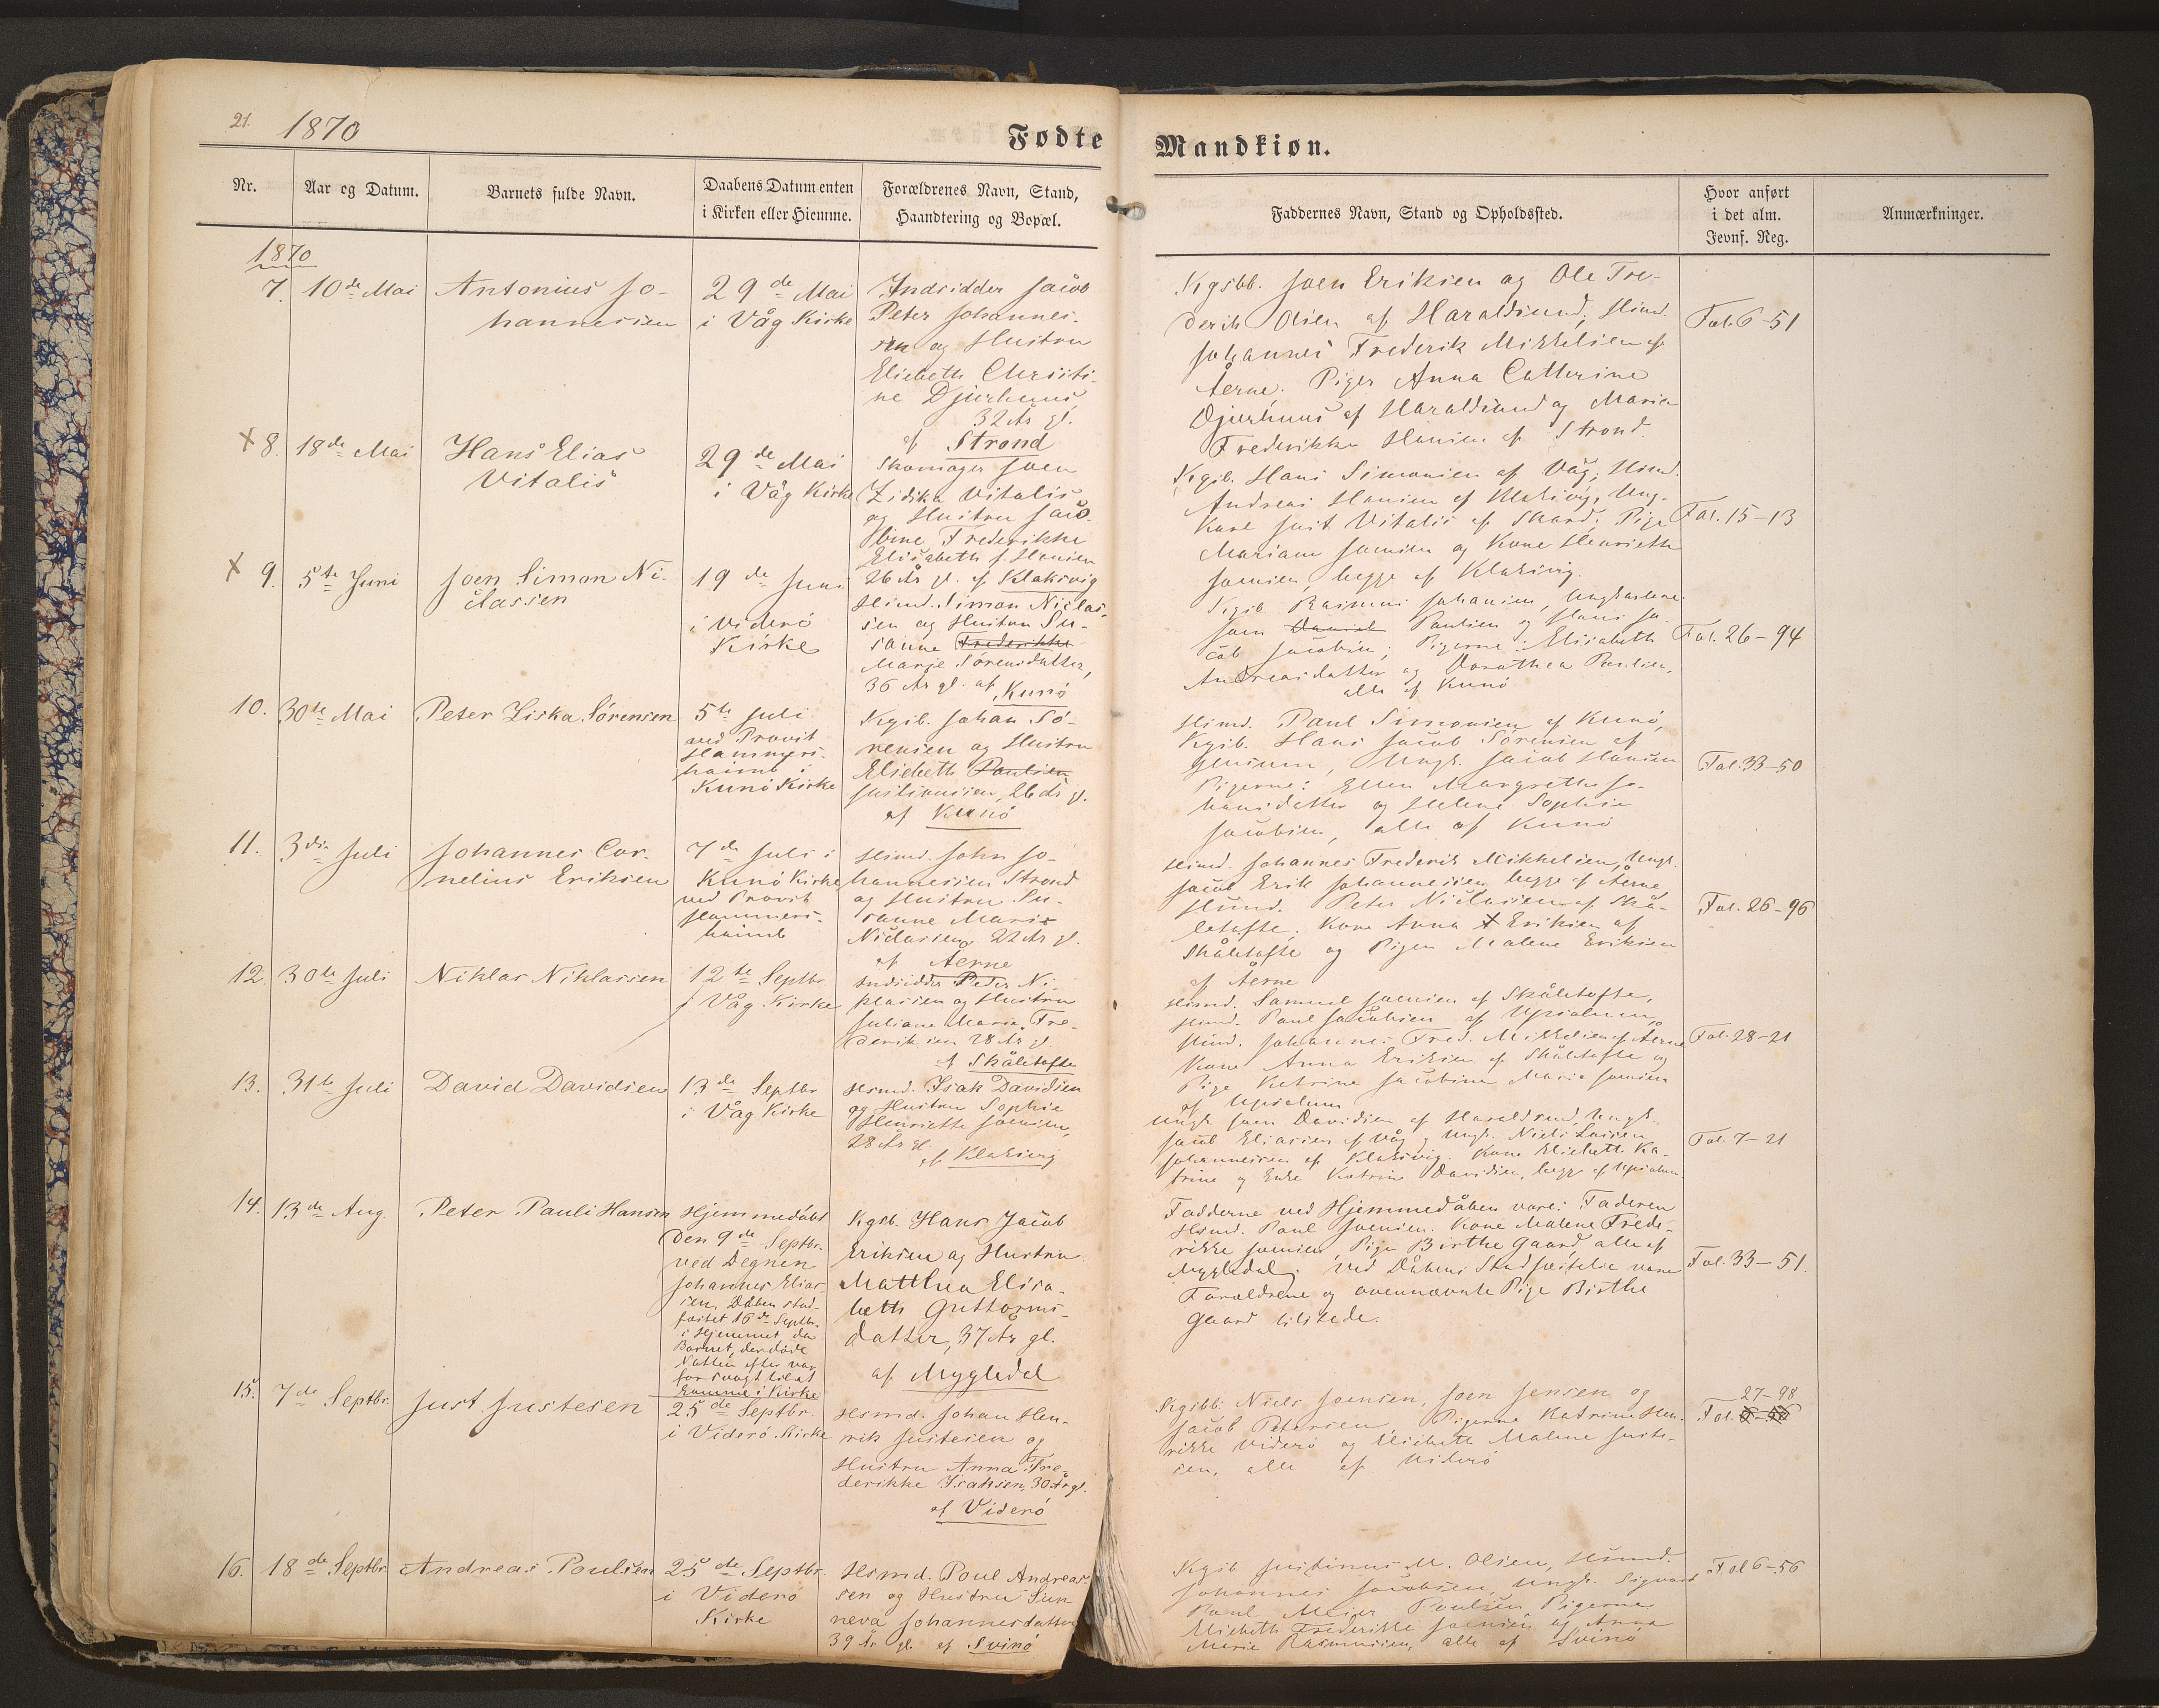 21. 1870
Fødte
Mandkiøn.
Nr.
Aar og Datum.
Barnets fulde Navn.
Daabens Datum enten
i Kirken eller Hiemme.
Forældrenes Navn, Stand,
Haandtering og Bopæl.
Faddernes Navn, Stand og Opholdssted.
Hvor anført
i det alm.
Jevnf. Reg.
Anmærkninger.
1870
7. 10de Mai
Antonius Jo-
hannesien
29de Mai
i Våg Kirke
Indsidder Jacob
Peter Johannes-
sen og Hustru
Eliebeth Christi-
ne Djurhuus
32 År gl.
af Strond
Kgsbb. Joen Eriksen og Ole Fre-
derik Olsen af Haraldsund; Hsmd.
Johannes Frederik Mikkelsen af
Aerne. Piger Anna Catherine
Djurhuus af Haraldsund og Maria
Frederikke Hansen af Strond.
Fol. 6-51
x 8. 18de Mai
Hans Elias
Vitalis
29de Mai
i Våg Kirke
Skomager Joen
Zidska Vitalis
og Hustru Jaco-
bine Frederikke
Elisabeth f. Hansen
26 År gl. af Klaksvig
Kgsb. Hans Simonsen af Våg; Hsmd.
Andreas Hansen af Klaksvig, Ung-
karl Just Vitalis af Skard; Pige
Mariane Joensen og Kone Henriette
Joensen, begge af Klaksvig.
Fol. 15-13
x 9. 5te Juni
Joen Simon Ni-
classen
19de Juni
i Viderö
Kirke
Hsmd. Simon Niclas-
sen og Hustru Su-
sanne Frederikke
Marje Sørensdatter,
36 År gl. af Kunö
Kgsb. Rasmus Johansen, Ungkarlene
Joen Daniel Poulsen og Hans Ja-
cob Jacobsen; Pigerne: Elisabeth
Andreasdatter og Dorothea Poulsen,
alle af Kunö
Fol. 26-94
10. 30te Mai
Peter Ziska Sørensen
5te Juli
ved Provst
Hammers-
haimb i
Kunö Kirke
Kgsb. Johan Sø-
rensen og Hustru
Eliebeth Paulsen
Justinussen, 26 År gl.
af Kunö
Hsmd. Paul Simonsen af Kunö,
Kgsb. Hans Jacob Sørensen af
Ungk. Jacob Hansen
Pigerne: Ellen Margrethe Jo-
hansdatter og Helene Sophie
Jacobsen, alle af Kunö
Fol. 33-50
11. 3die Juli
Johannes Cor-
nelius Eriksen
7de Juli i
Kunö Kirke
ved Provst
Hammers-
haimb
Hsmd. John Jo-
hannesien Strond
og Hustru Su-
sanne Marie
Niclasien 22 År gl.
af Aerne
Hsmd. Johannes Frederik Mikkelsen, Ungk.
Jacob Erik Johannesien begge af Aerne
Hsmd. Peter Niclasien af Skå-
letofte, Kone Anna Eriksen af
Skåletofte og Pigen Malene Eriksen
af Aerne
Fol. 26-96
12. 30te Juli
Niklas Niklassen
12te Septbr.
i Våg Kirke
Indsidder Peder Ni-
klassen og Hustru
Juliane Marie Fre-
deriksen 28 År gl.
af Skåletofte
Hsmd. Samuel Joensen af Skåletofte,
Hsmd. Paul Jacobsen af Upsalum,
Hsmd. Johannes Fred. Mikkelsen af Aerne
Kone Anna Eriksen af Skåletofte og
Pige Katrine Jacobine Marie Joensen
af Upsalum
Fol. 28-21
13. 31te Juli
David Davidsen
13de Septbr
i Våg Kirke
Hsmd. Isak Davidsen
og Hustru Sophie
Henriette Joensen,
28 År gl.
af Klaksvig
Ungk. Joen Davidsen af Haraldsund, Ungk.
Joel Eliasien af Våg og Ungk. Niels
Johannessen af Klaksvig. Kone Eliebeth Ka-
trine og Enke Katrine Davidsen, begge af Upsalum
Fol. 7-21
14. 13de Aug.
Peter Pauli Hansen
Hjemmedöbt
den 9de Septbr.
ved Degnen
Johannes Elias-
sen, Dåben stad-
fæstet 16de Septbr.
i Hjemmet, da
Barnet, der döde
Natten efter var
for svagt til at
komme i Kirke
Kgsb. Hans Jacob
Eriksen og Hustru
Matthea Elisa-
beth Guttorms-
datter, 37 År gl.
af Mygledal
Fadderne ved Hjemmedåben vare: Faderen
Hsmd. Paul Joensen. Kone Malene Frede-
rikke Joensen, Pige Birthe Gaard alle af
Mygledal; ved Dåbens Stadfæstelse vare
Forældrene og ovennævnte Pige Birthe
Gaard tilstede.
Fol. 33-51.
15. 7de Septbr.
Just Justesen
25de Septbr.
i Viderö Kirke
Hsmd. Johan Hen-
rik Justesen og
Hustru Anna Fre-
derikke Isaksen, 30 År gl.
af Viderö
Kgsbb: Niels Joensen, Joen Jensen og
Jacob Petersen, Pigerne Katrine Hen-
rikke Viderö og Eliebeth Malene Juste-
sen, alle af Viderö
27-98
Fol. 6-56
16. 18de Septbr
Andreas Poulsen
25de Septbr.
i Viderö
Kirke
Hsmd. Poul Andreas-
sen og Hustru Sun-
neva Johannesdatter
39 År gl. af Svinö
Kgsb Justinus M. Olsen, Hsmd.
Johannes Jacobsen, Ungk. Sigvart
Poul Meier Poulsen, Pigerne
Eliebeth Frederikke Joensen og Anna
Marie Rasmussen, alle af Svinö
Fol 6-56